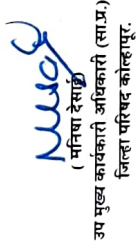 ( मनिषा देसाई)
उप मुख्य कार्यकारी अधिकारी (सा.प्र.)
जिल्हा परिषद कोल्हापूर.